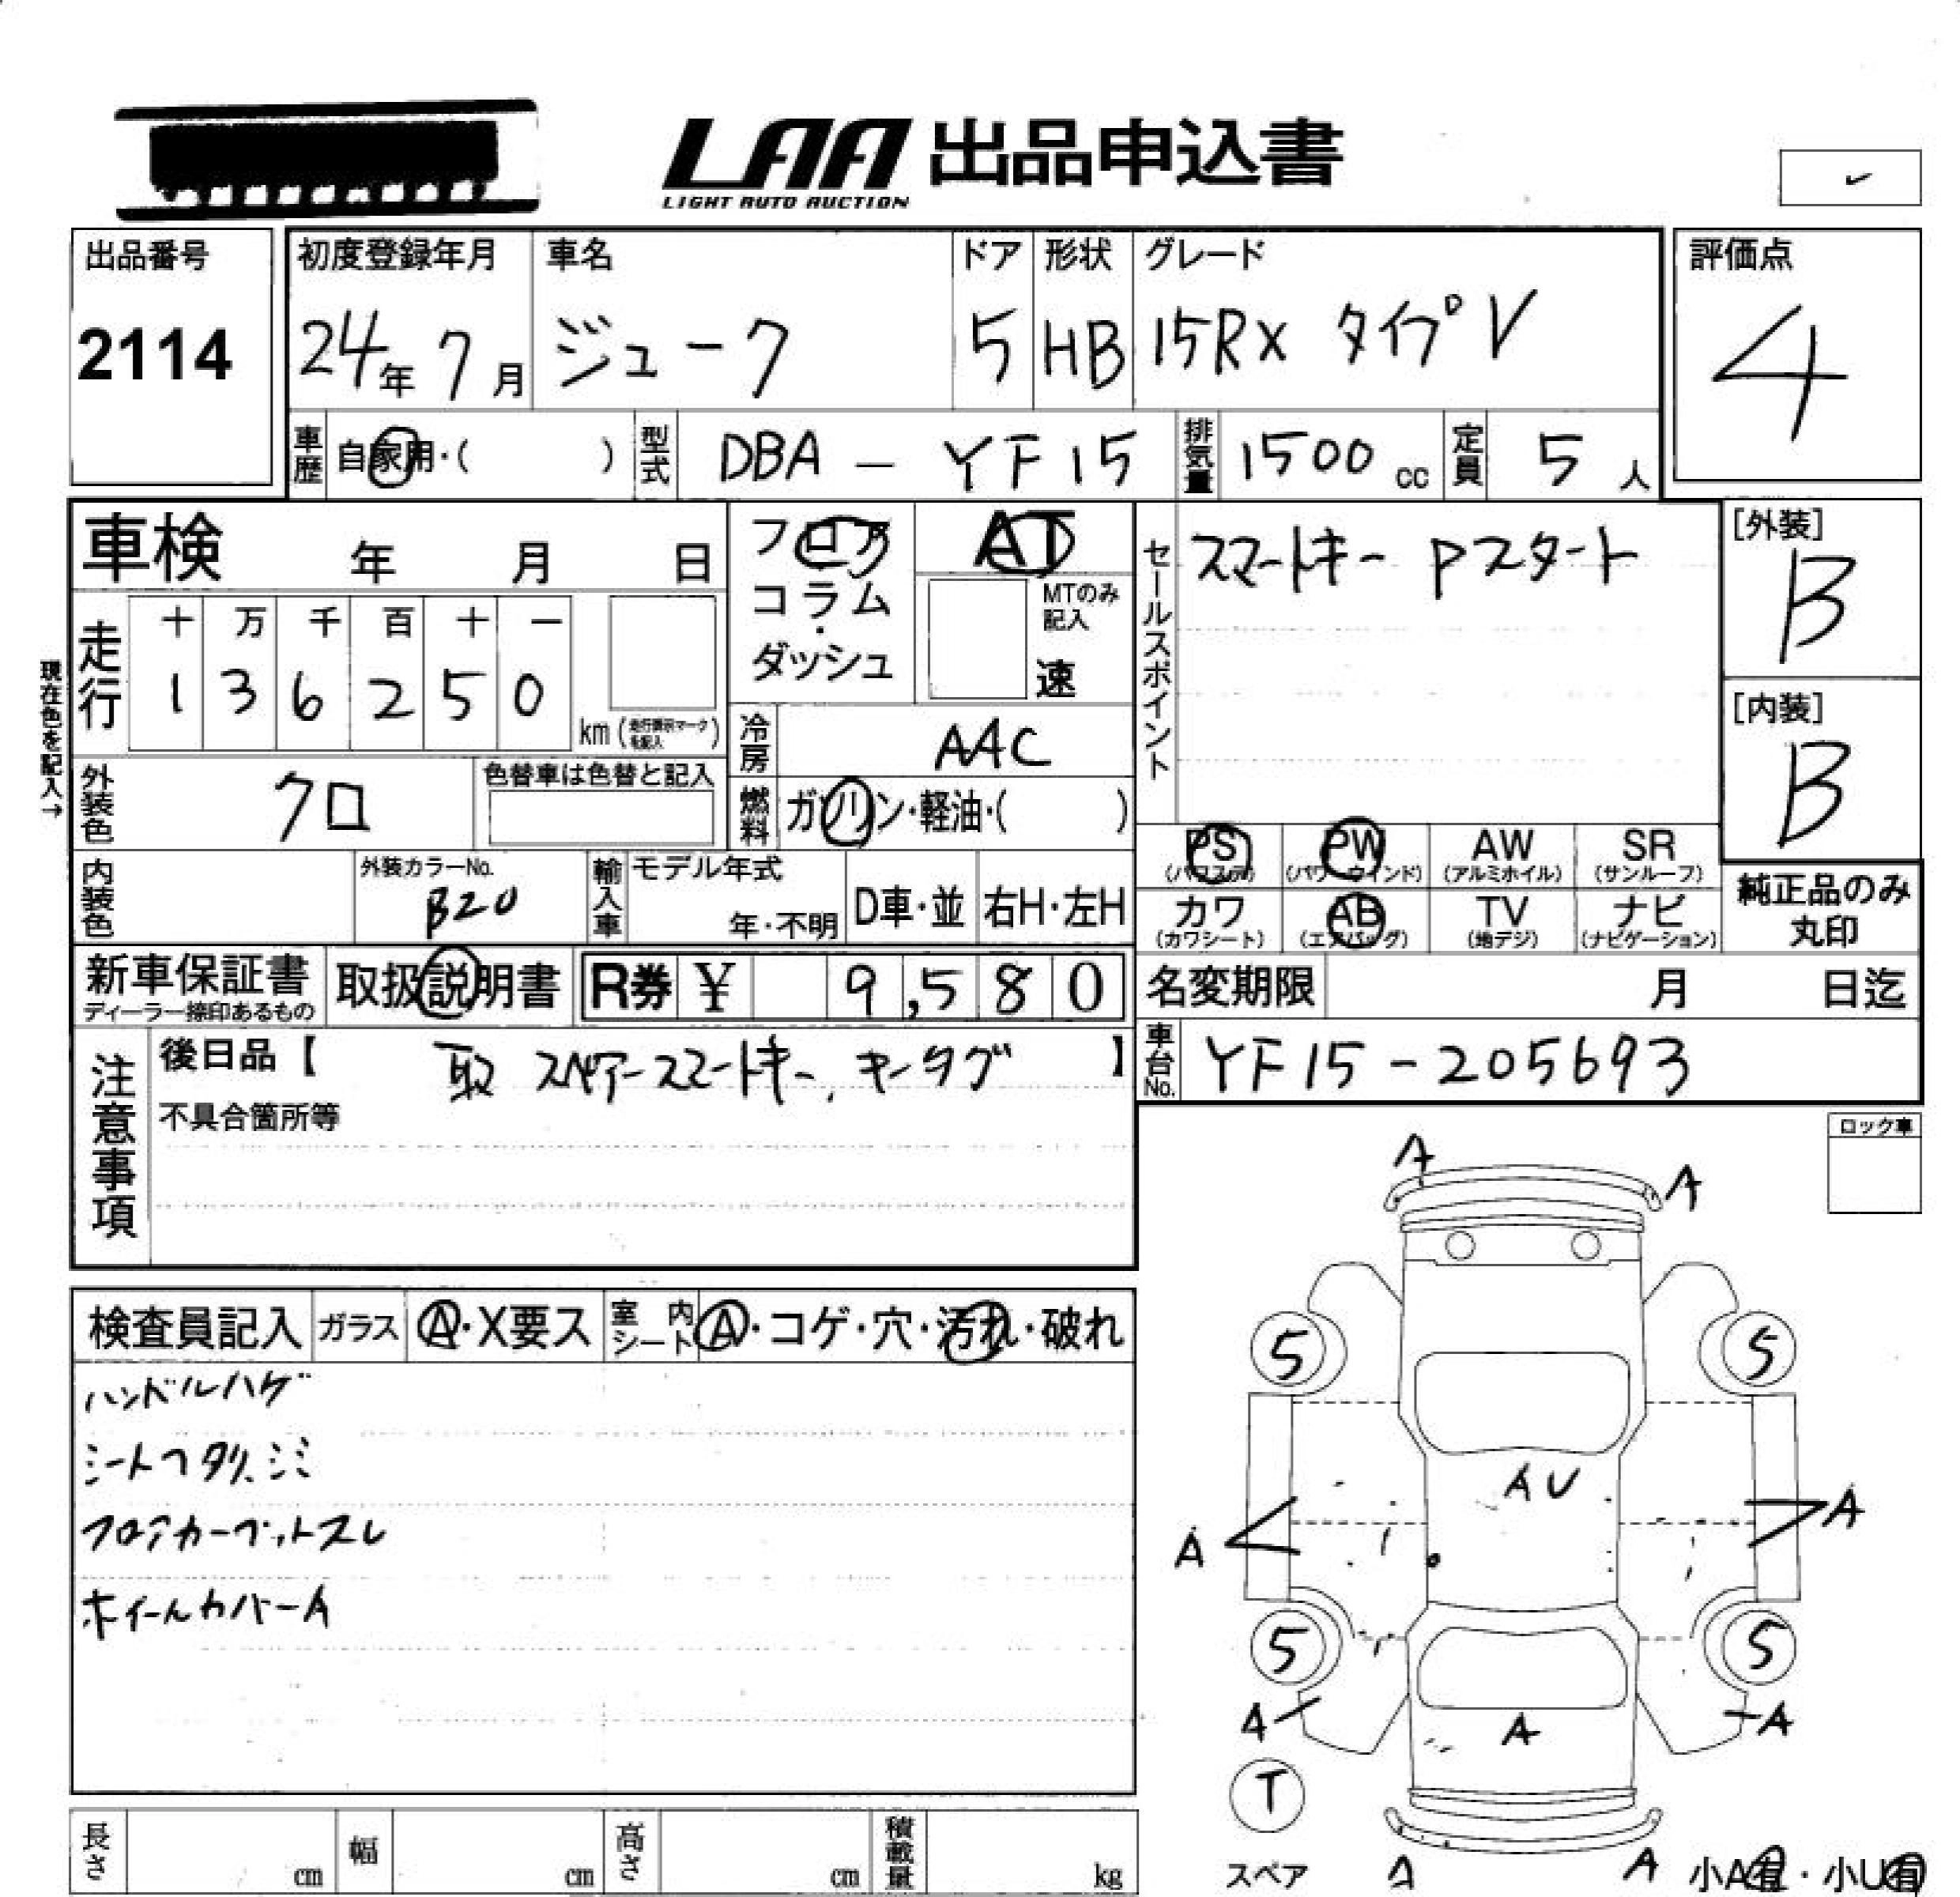 LAA 出品申込書
LIGHT AUTO AUCTION
出品番号
2114
初度登録年月
24年 7月
車名
ジューク
ドア
5
形状
HB
グレード
15RX タイプV
評価点
4
車歴 自家用・( )
型式 DBA - YF15
排気量 1500 cc
定員 5 人
車検 年 月 日
フロア
コラム・
ダッシュ
AT
MTのみ
記入
速
セールスポイント
スマートキー Pスタート
[外装]
B
[内装]
B
現在色を記入→
走行
十 万 千 百 十 一
1 3 6 2 5 0
km (走行表示マークを記入)
冷房 AAC
外装色 クロ
色替車は色替と記入
燃料 ガソリン・軽油・( )
PS (パワステ)
PW (パワーウインド)
AW (アルミホイル)
SR (サンルーフ)
カワ (カワシート)
AB (エアバッグ)
TV (地デジ)
ナビ (ナビゲーション)
純正品のみ
丸印
内装色
外装カラーNo.
B20
輸入車
モデル年式
年・不明
D車・並
右H・左H
新車保証書
ディーラー捺印あるもの
取扱説明書
R券 ¥ 9,580
名変期限 月 日迄
車台No. YF15-205693
注意事項
後日品【 取 スペアースマートキー、キータグ 】
不具合箇所等
ロック車
検査員記入
ガラス A・X要ス
室内シート A・コゲ・穴・汚れ・破れ
ハンドルハゲ
シートヘタリ、シミ
フロアカーペットスレ
ホイールカバーA
A
A
5
5
A U
A
A
5
5
A
A
A
T
スペア
A
A
小A有・小U有
長さ cm
幅 cm
高さ cm
積載量 kg